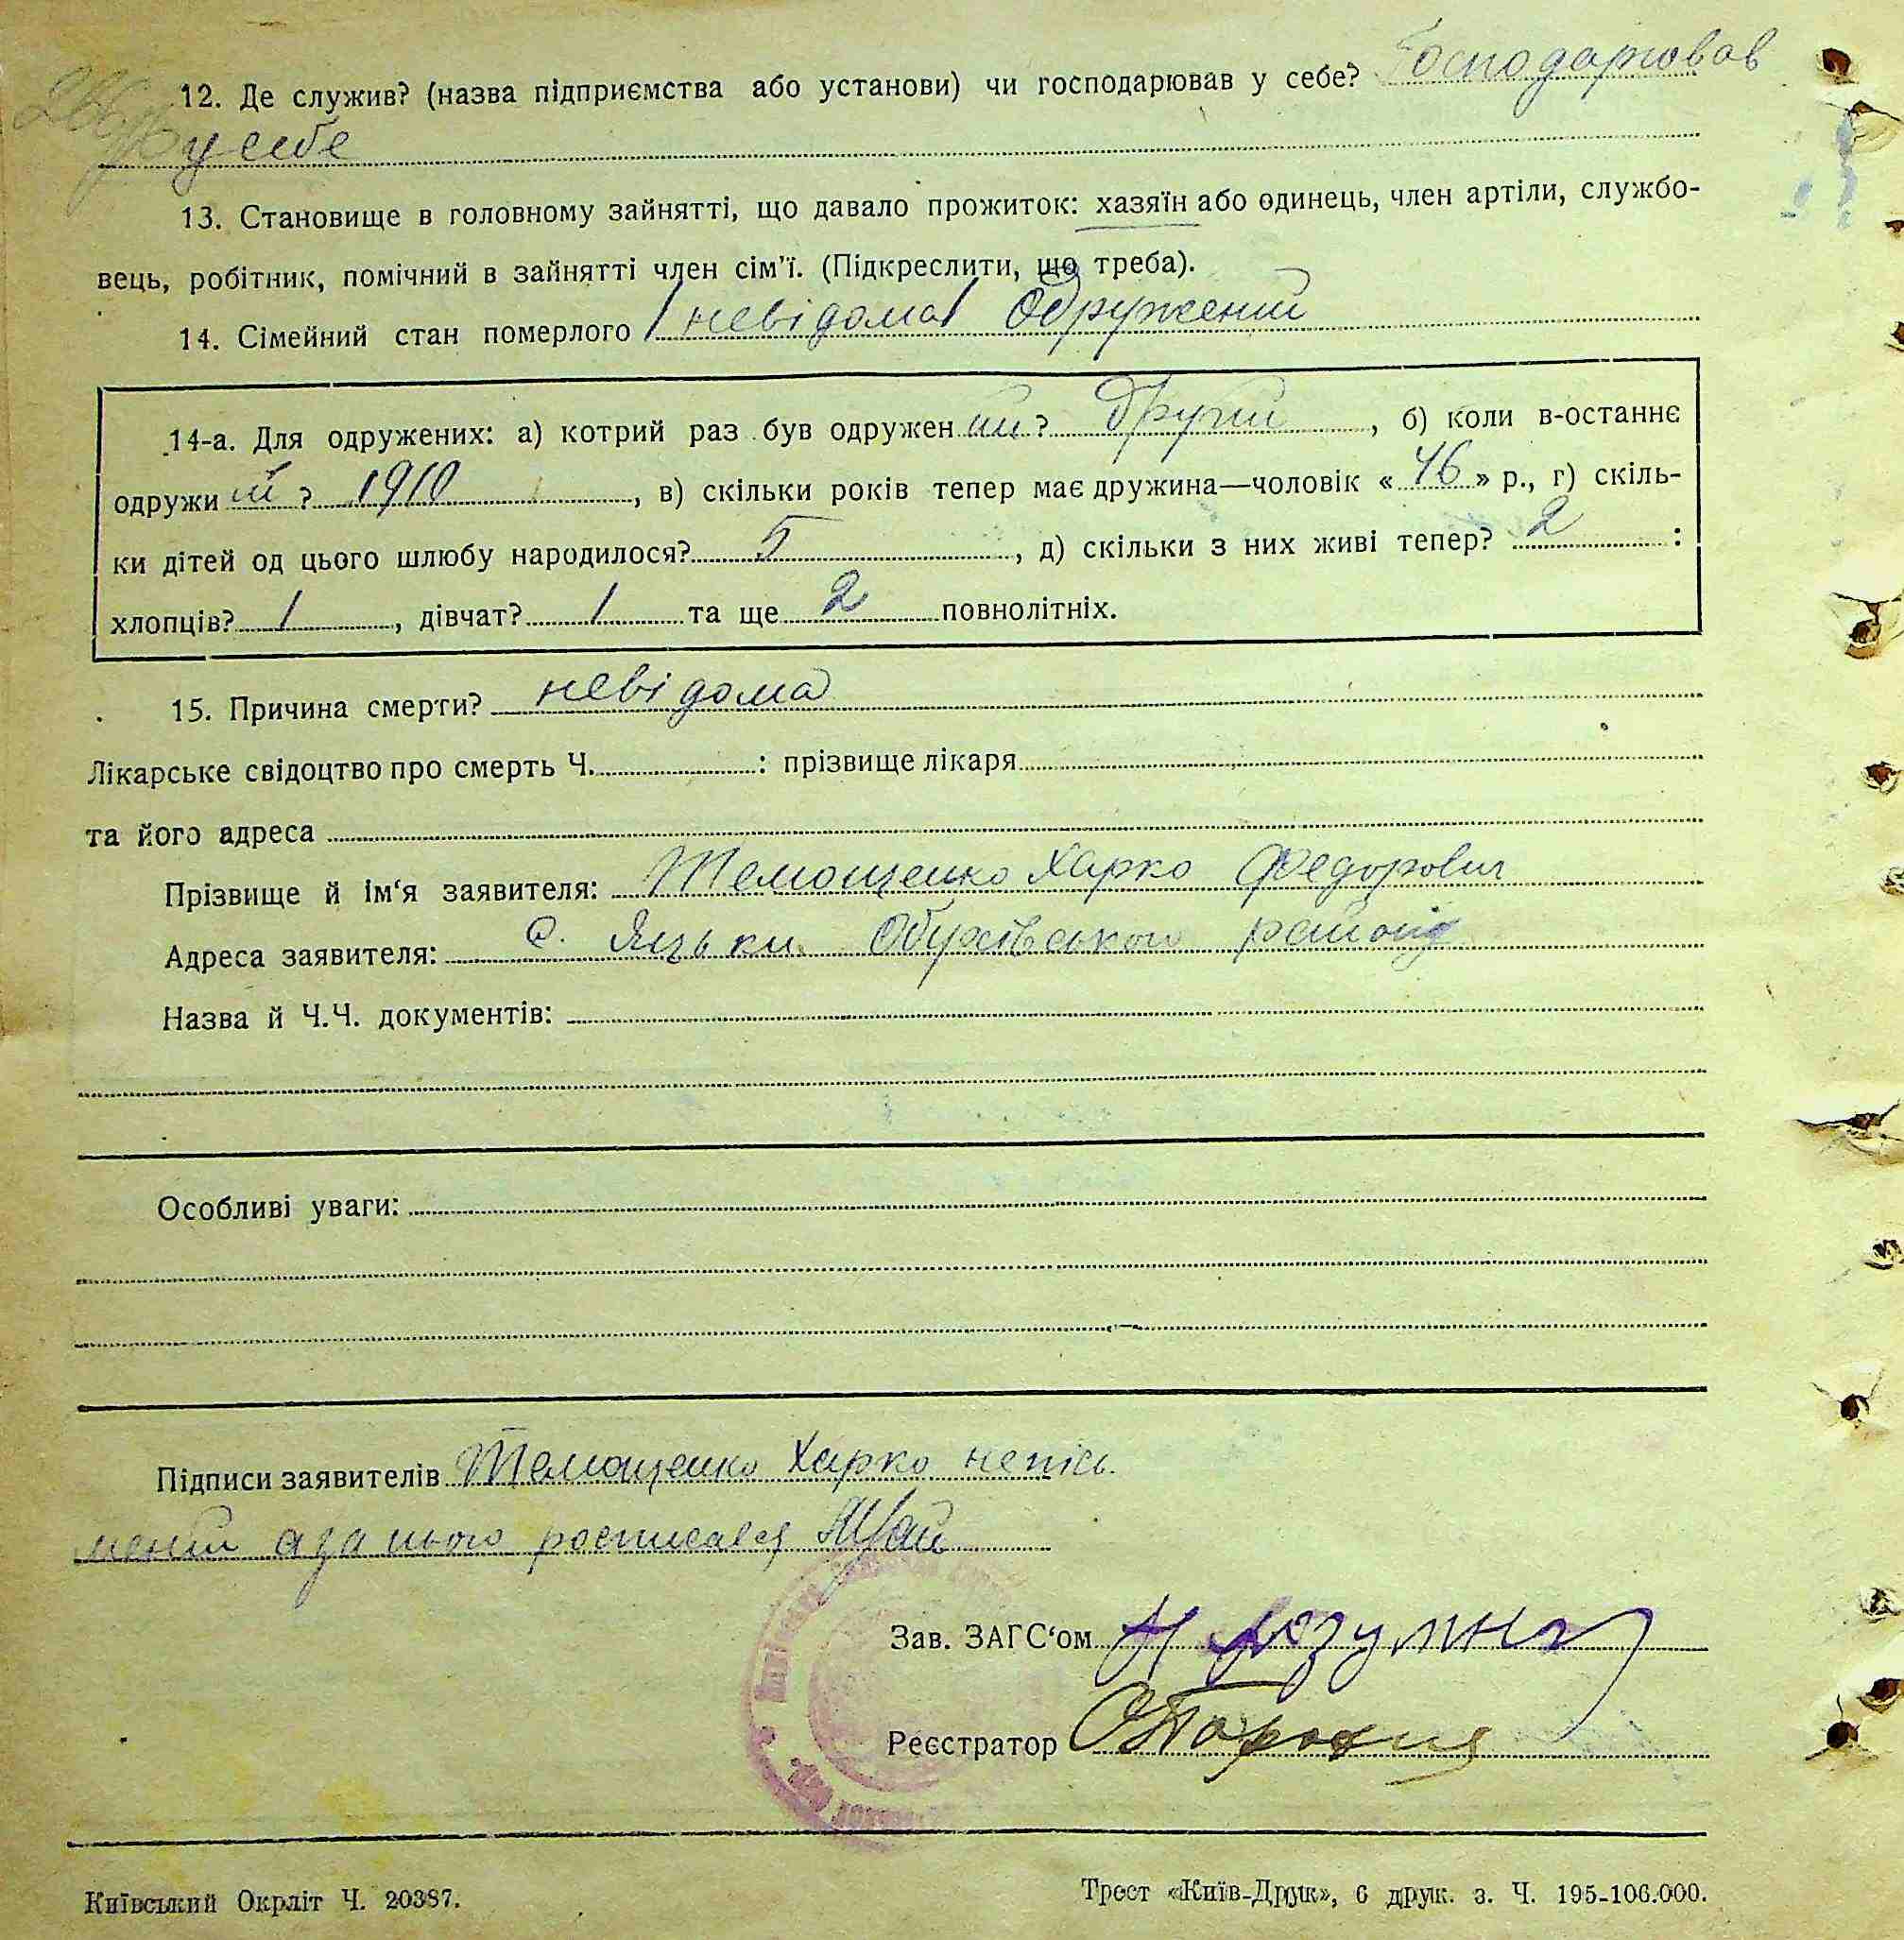 12. Де служив? (назва підприємства або установи) чи господарював у себе? Господарював
у себе
13. Становище в головному зайнятті, що давало прожиток: хазяїн або одинець, член артіли, службо-
вець, робітник, помічний в зайнятті член сім'ї. (Підкреслити, що треба).
14. Сімейний стан померлого /невідома/ Одружений
14-а. Для одружених: а) котрий раз був одружен ий? другий, б) коли в-останнє
одружи й? 1910, в) скільки років тепер має дружина—чоловік «46» р., г) скіль-
ки дітей од цього шлюбу народилося? 5, д) скільки з них живі тепер? 2 :
хлопців? 1, дівчат? 1 та ще 2 повнолітніх.
15. Причина смерти? невідома
Лікарське свідоцтво про смерть Ч. : прізвище лікаря
та його адреса
Прізвище й ім'я заявителя: Темощенко Харко Федорович
Адреса заявителя: с. Яцьки Обухівського району
Назва й Ч.Ч. документів:
Особливі уваги:
Підписи заявителів Темощенко Харко непісь
мений а за нього росписався
Зав. ЗАГС'ом
Реєстратор
Київський Окрліт Ч. 20387.
Трест «Київ-Друк», 6 друк. з. Ч. 195-106.000.